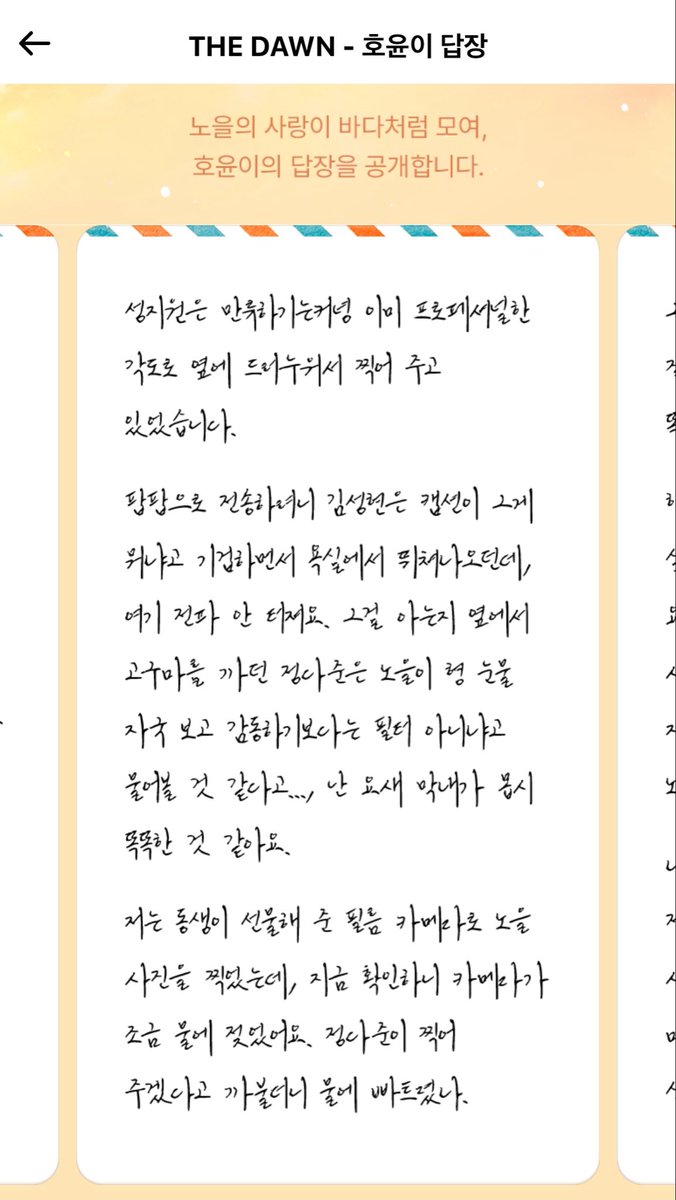 THE DAWN - 호윤이 답장
노을의 사랑이 바다처럼 모여,
호윤이의 답장을 공개합니다.
성지원은 만류하기는커녕 이미 프로페셔널한
각도로 옆에 드러누워서 찍어 주고
있었습니다.
팝팝으로 전송하려니 김성현은 캡션이 그게
뭐냐고 기겁하면서 욕실에서 뛰쳐나오던데,
여기 전파 안 터져요. 그걸 아는지 옆에서
고구마를 까던 정다준은 노을이 형 눈물
자국 보고 감동하기보다는 필터 아니냐고
물어볼 것 같다고..., 난 요새 막내가 몹시
똑똑한 것 같아요.
저는 동생이 선물해 준 필름 카메라로 노을
사진을 찍었는데, 지금 확인하니 카메라가
조금 물에 젖었어요. 정다준이 찍어
주겠다고 까불더니 물에 빠트렸나.